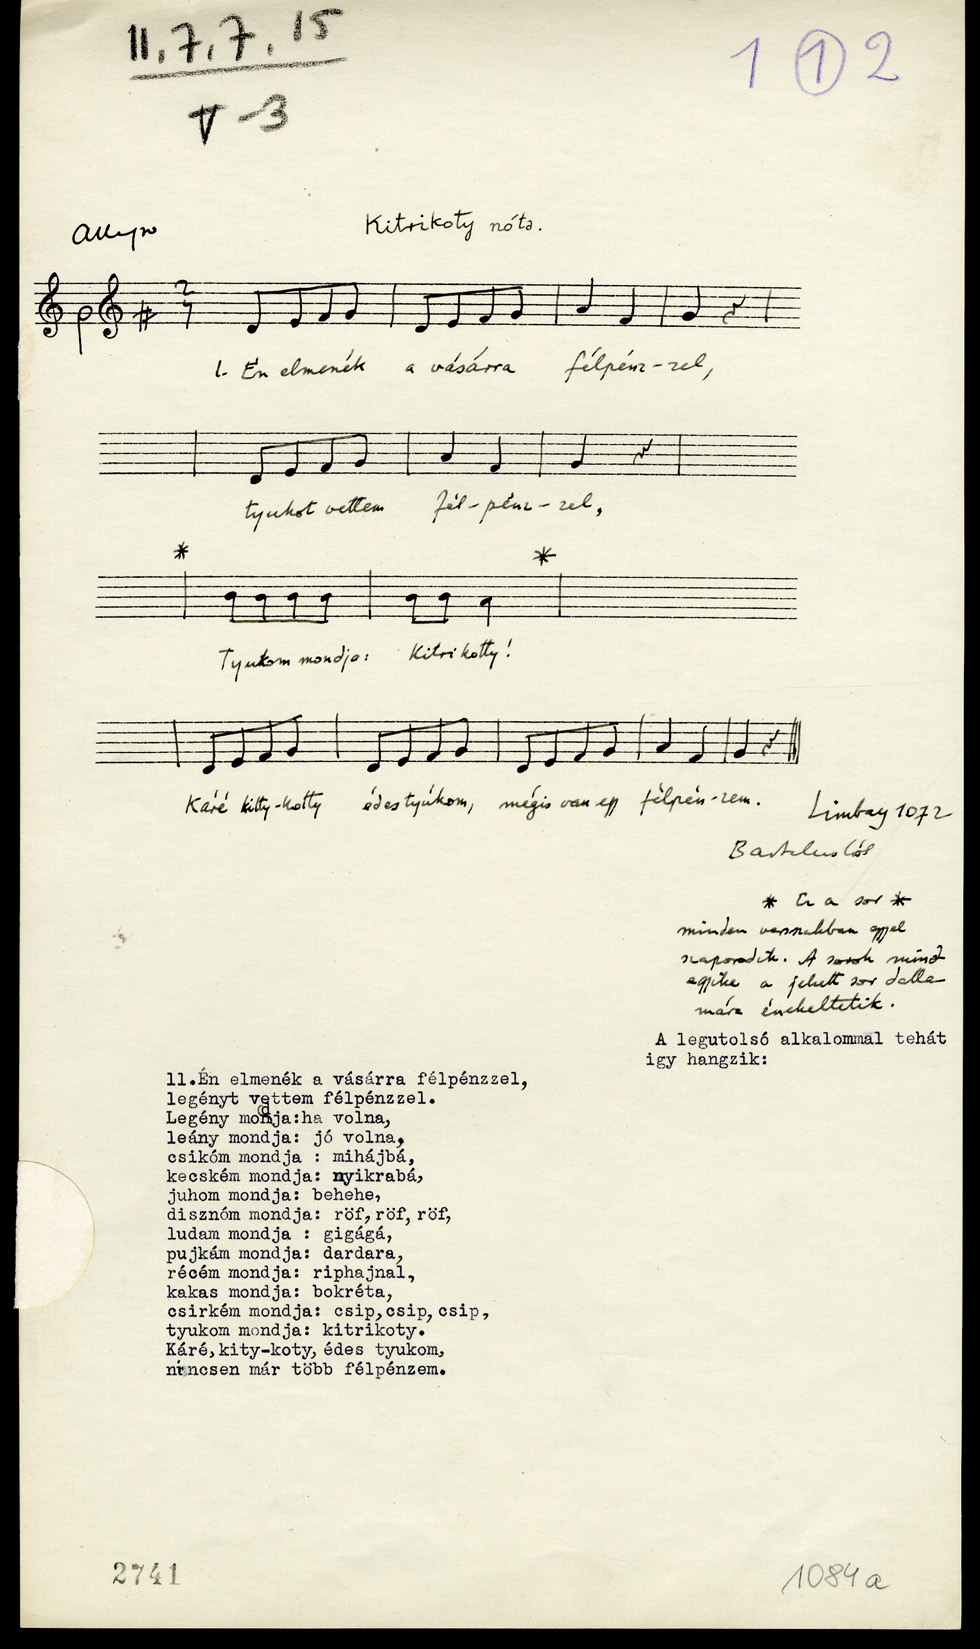 11.7.7.15
V-3
1 1 2
Kitrikoty nóta.
Allegro
1. Én elmenék a vásárra félpénz-zel,
tyukot vettem fél-pénz-zel,
* *
Tyukom mondja: Kitrikotty!
Káré kitty-kotty édes tyúkom, mégis van egy félpén-zem.
Limbay 1072
* Ez a sor *
minden versszakban eggyel
szaporodik. A sorok mind-
egyike a jelzett sor dalla-
mára énekeltetik.
A legutolsó alkalommal tehát
igy hangzik:
11.Én elmenék a vásárra félpénzzel,
legényt vettem félpénzzel.
Legény mondja:ha volna,
leány mondja: jó volna,
csikóm mondja : mihájbá,
kecském mondja: nyikrabá,
juhom mondja: behehe,
disznóm mondja: röf,röf,röf,
ludam mondja : gigágá,
pujkám mondja: dardara,
récém mondja: riphajnal,
kakas mondja: bokréta,
csirkém mondja: csip,csip,csip,
tyukom mondja: kitrikoty.
Káré,kity-koty, édes tyukom,
nincsen már több félpénzem.
2741
1084a